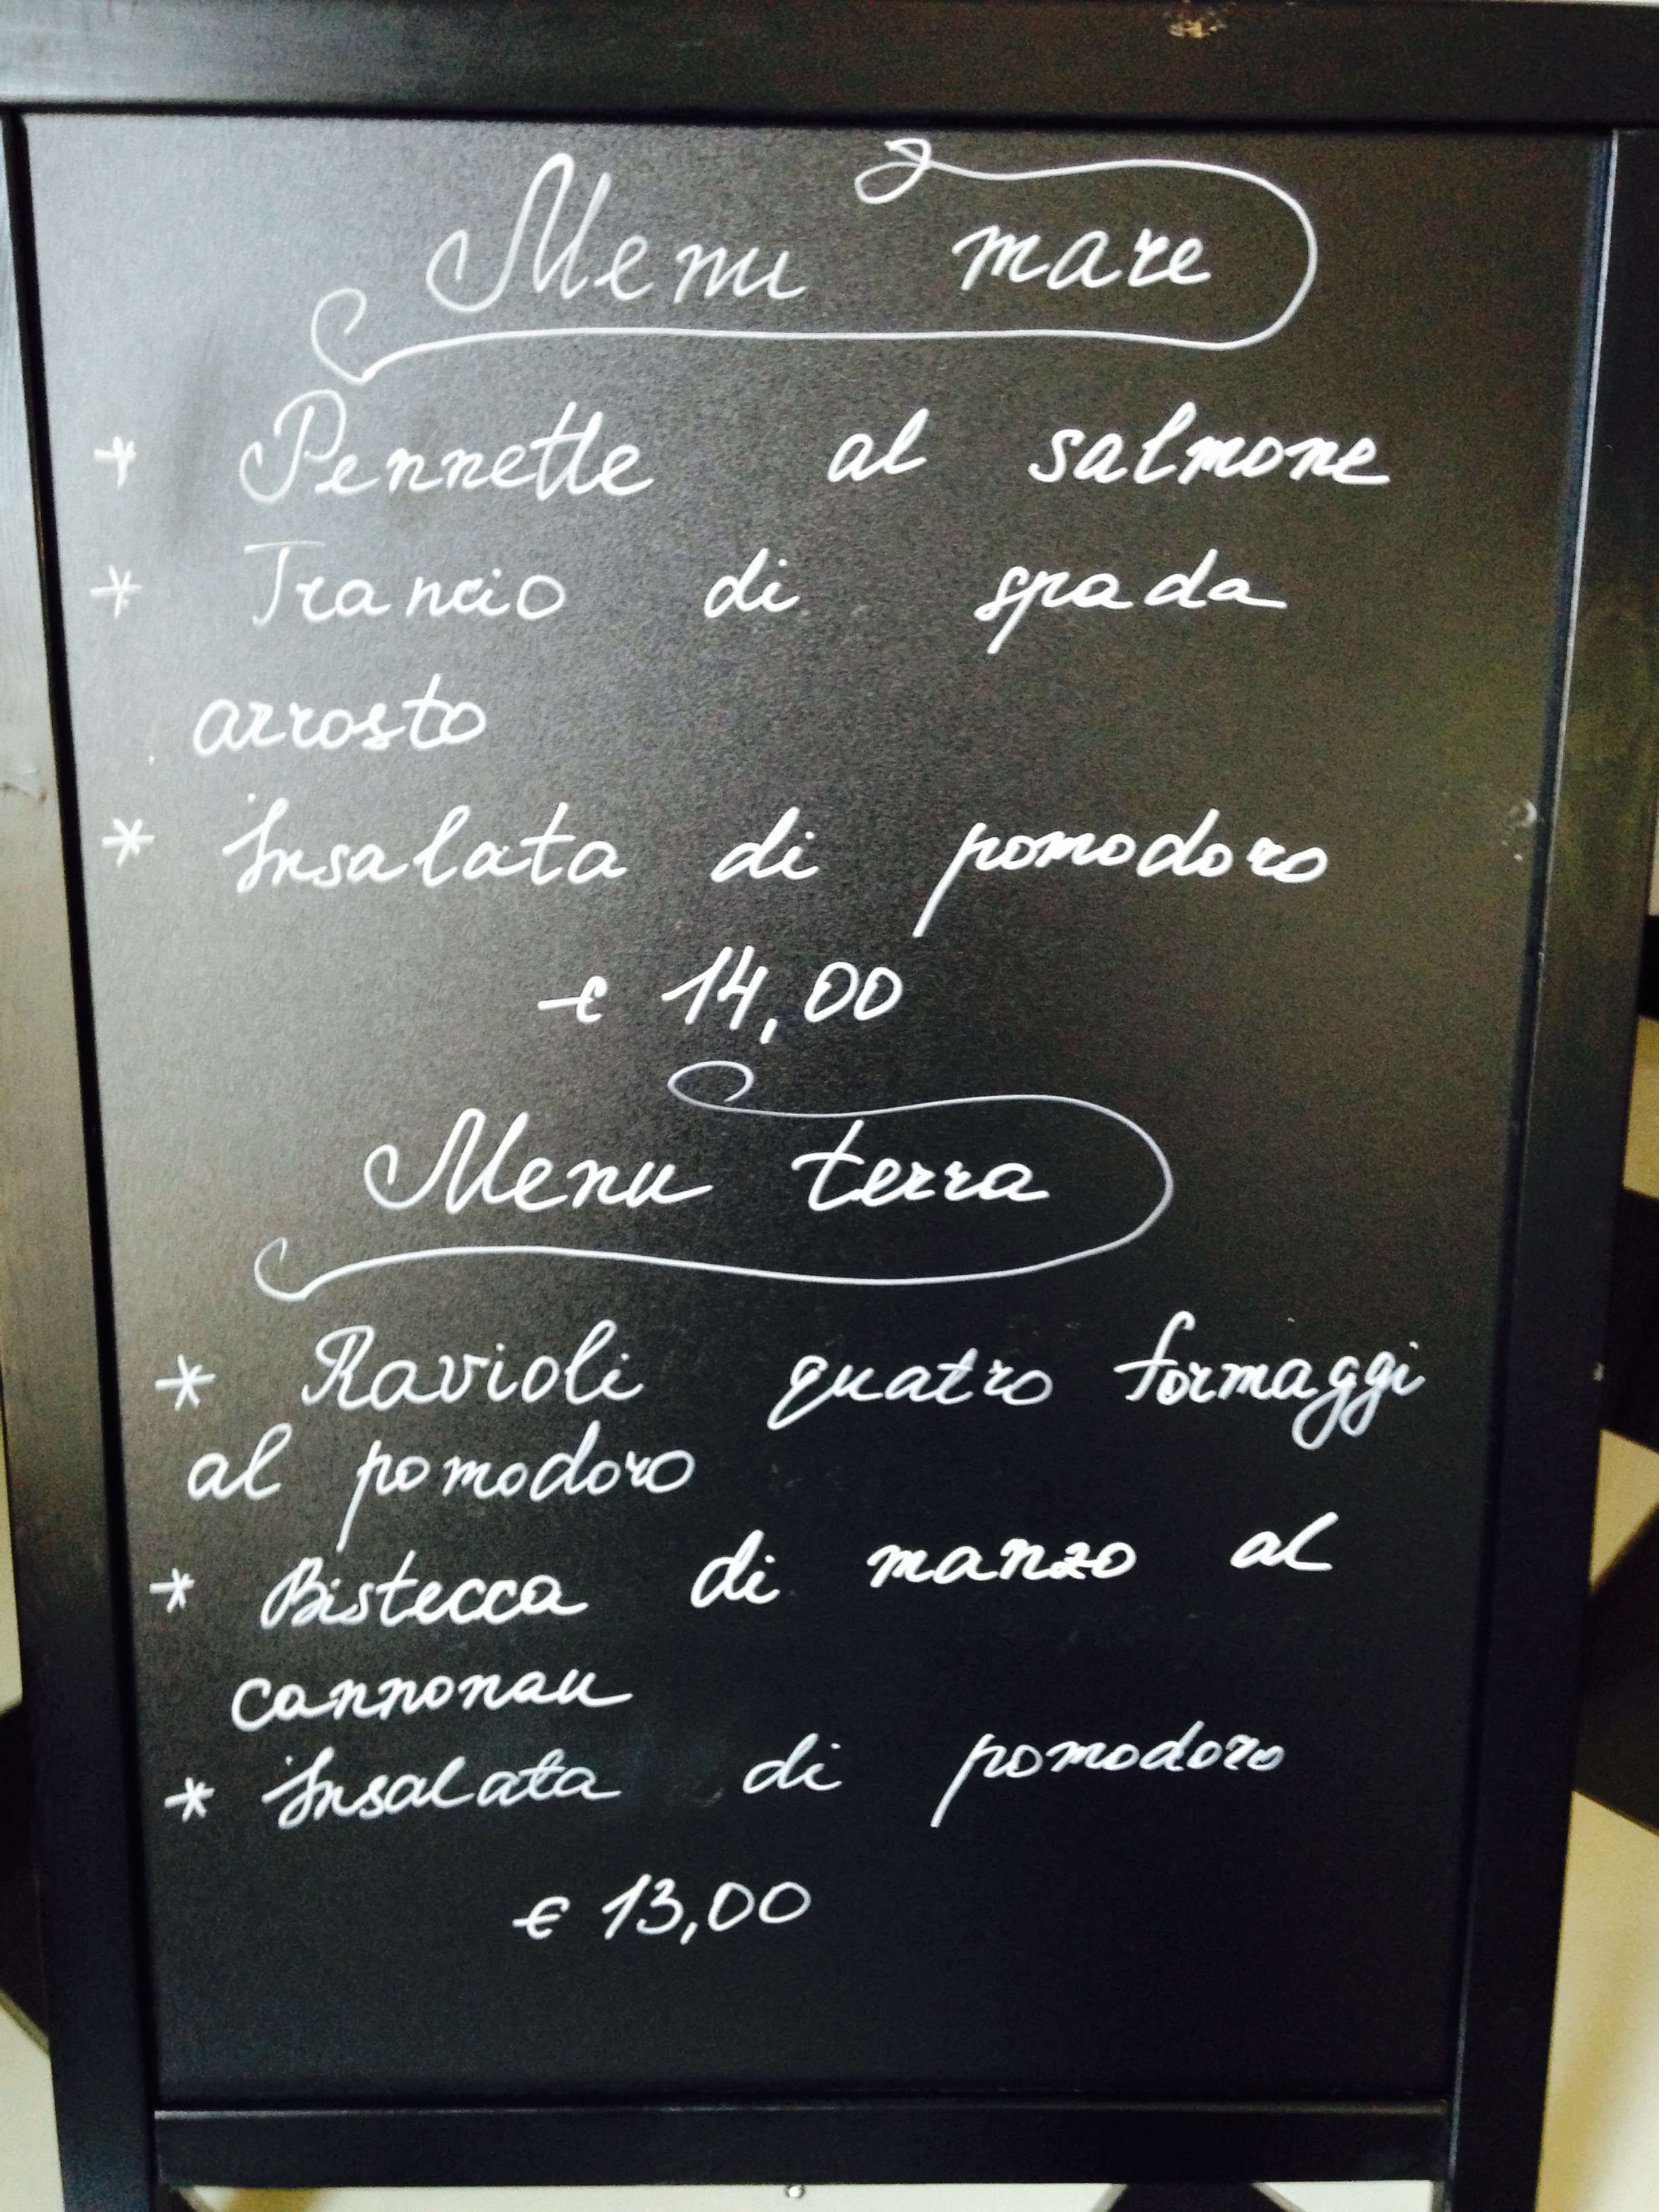 Menu mare
* Pennette al salmone
* Trancio di spada
arrosto
* Insalata di pomodoro
€ 14,00
Menu terra
* Ravioli quatro formaggi
al pomodoro
* Bistecca di manzo al
cannonau
* Insalata di pomodoro
€ 13,00